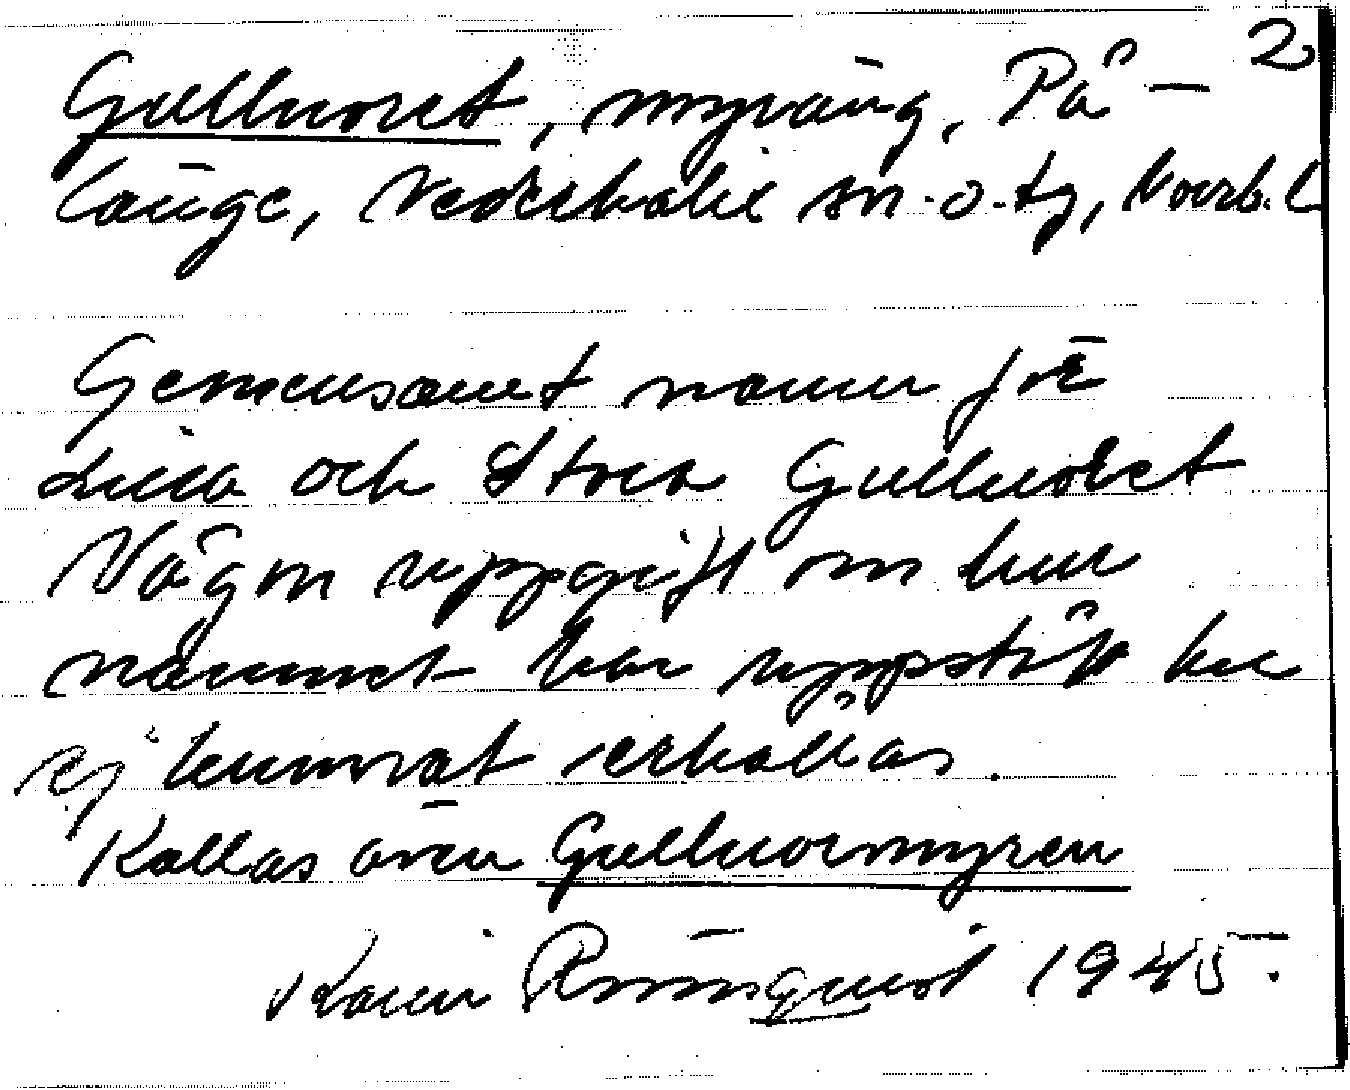 2
Gullhoret, myräng, På-
länge, Nederkalix sn. o. tg, Norrb. l
Gemensamt namn för
Lilla och Stora Gullhoret
Någon uppgift om hur
namnet har uppstått har
ej kunnat erhållas.
Kallas även Gullhormyren
Karin Rönnquist 1945.